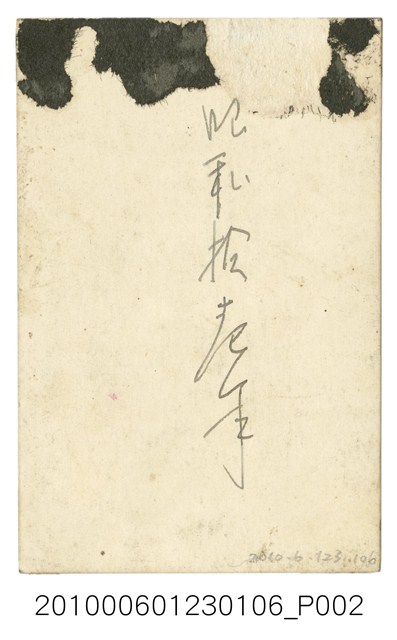 昭和拾壱年
2010.6.123.106
201000601230106_P002